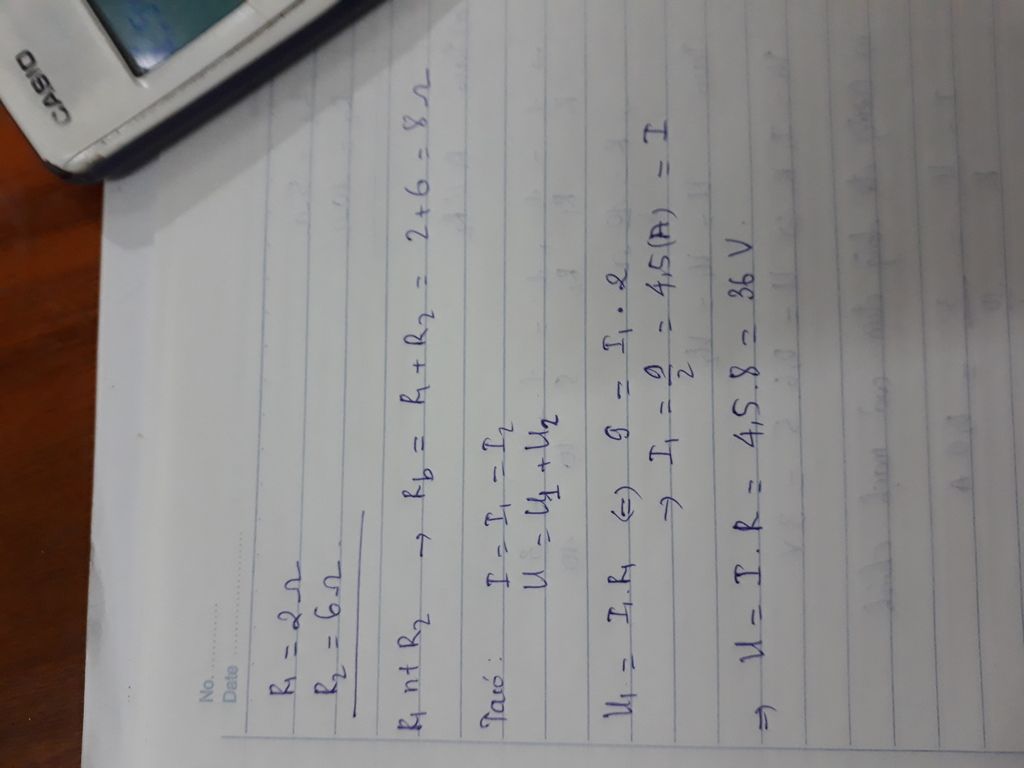 CASIO
No. ............
Date ........................
R₁ = 2Ω
R₂ = 6Ω
R₁ nt R₂ → R_b = R₁ + R₂ = 2+6 = 8Ω
Ta có: I = I₁ = I₂
U = U₁ + U₂
U₁ = I₁.R₁ (=) 9 = I₁.2
=> I₁ = 9/2 = 4,5(A) = I
=> U = I.R = 4,5.8 = 36 V